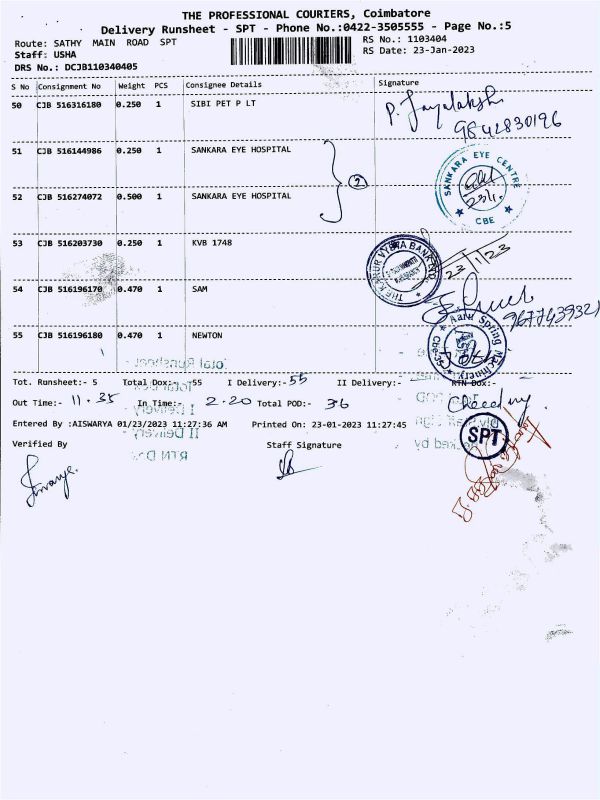 THE PROFESSIONAL COURIERS, Coimbatore
Delivery Runsheet - SPT - Phone No.:0422-3505555 - Page No.:5
Route: SATHY MAIN ROAD SPT
RS No.: 1103404
Staff: USHA
RS Date: 23-Jan-2023
DRS No.: DCJB110340405
S No Consignment No Weight PCS Consignee Details Signature
50 CJB 516316180 0.250 1 SIBI PET P LT
P. Jayalakshi
9842830196
51 CJB 516144986 0.250 1 SANKARA EYE HOSPITAL
2
SANKARA EYE CENTRE
CBE
52 CJB 516274072 0.500 1 SANKARA EYE HOSPITAL
53 CJB 516203730 0.250 1 KVB 1748
THE KARUR VYSYA BANK LTD
23/1/23
54 CJB 516196170 0.470 1 SAM
9677439321
55 CJB 516196180 0.470 1 NEWTON
Aara Spring Machinery
Total Runsheet
Tot. Runsheet:- 5 Total Dox:- 55 I Delivery:- 55 II Delivery:- RTN Dox:-
Out Time:- 11.35 In Time:- 2.20 Total POD:- 36
I Delivery
Entered By :AISWARYA 01/23/2023 11:27:36 AM Printed On: 23-01-2023 11:27:45
II Delivery
SPT
Verified By Staff Signature